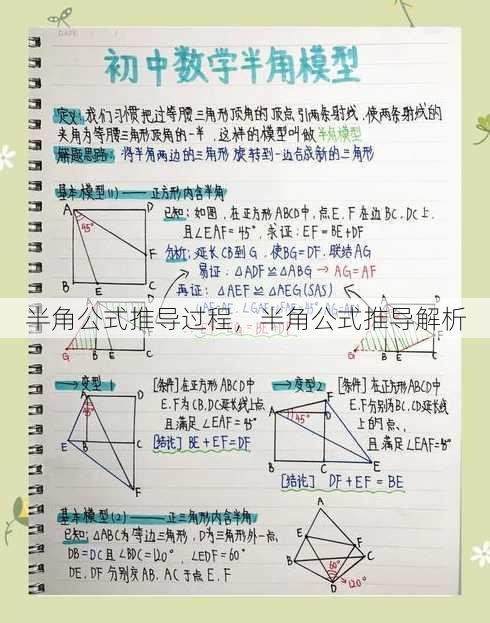 DATE
初中数学半角模型
定义:我们习惯把过等腰三角形顶角的顶点引两条射线,使两条射线的
夹角为等腰三角形顶角的一半,这样的模型叫做半角模型
解题思路:将半角两边的三角形旋转到一边合成新的三角形
基本模型(1)——正方形内含半角
已知:如图,在正方形ABCD中,点E.F在边BC.DC上,
且∠EAF=45°,求证:EF=BE+DF
分析:延长CB到G,使BG=DF.联结AG
易证:△ADF≌△ABG→AG=AF
再证:△AEF≌△AEG(SAS)
A
D
45°
F
B
E
C
半角公式推导过程，半角公式推导解析
G
B
E
C
→变型1
[条件]在正方形ABCD中
E.F为CB.DC延长线上点,
且满足∠EAF=45°
[结论]BE+EF=DF
A
D
45°
E
B
C
F
→变型2
[条件]在正方形ABCD中
E.F分别为BC.CD延长线
上的点,
且满足∠EAF=45°
A
F
45°
D
B
C
E
[结论] DF+EF=BE
基本模型(2)——正三角形内含半角
已知:△ABC为等边三角形,D为三角形外一点,
DB=DC且∠BDC=120°,∠EDF=60°
DE.DF分别交AB.AC于点E.F
A
E
F
B
C
60°
D